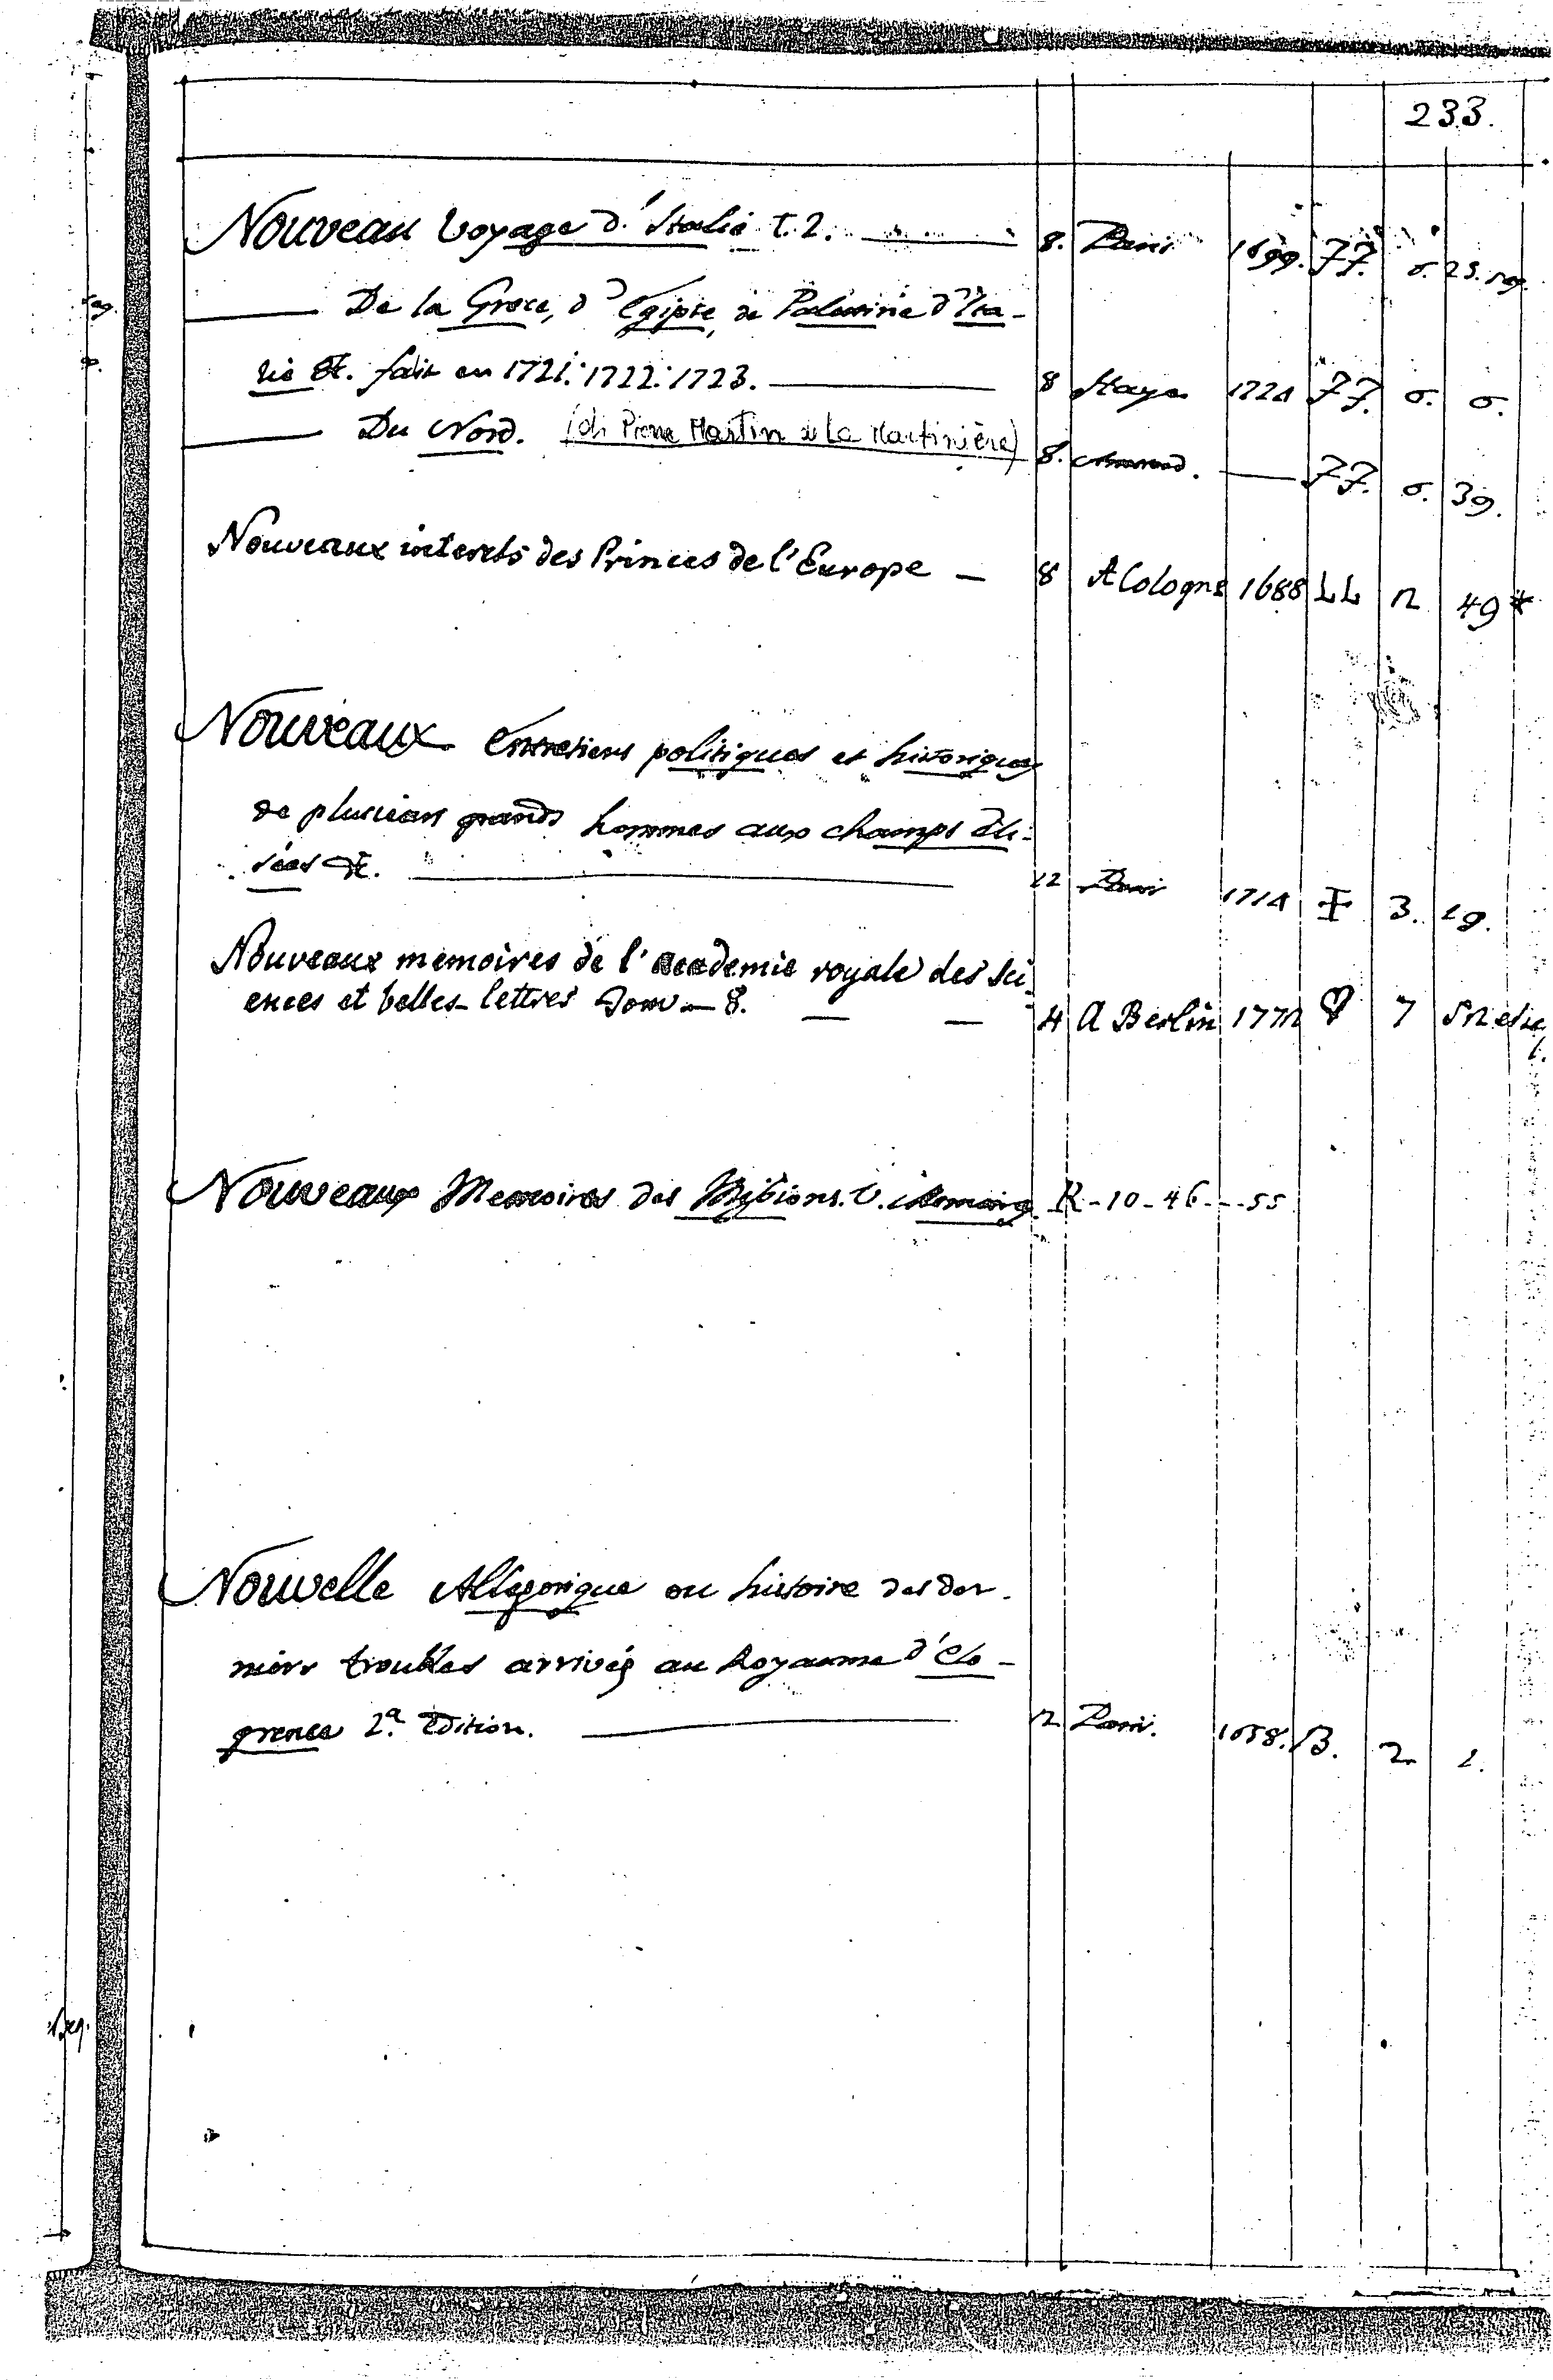 233.
Nouveau Voyage d'Italie t. 2. 8. Paris 1699. FF. 6. 25. seg.
De la Grece, d'Egipte, de Palestine d'Ita-
lie &c. fait en 1721. 1722. 1723. 8 Haye 1724 FF. 6. 6.
Du Nord. (di Pierre Martin de La Martinière) 8. FF. 6. 39.
Nouveaux interets des Princes de l'Europe 8 A Cologne 1688 LL n 49 *
Nouveaux Entretiens politiques et historiques
de plusieurs grands hommes aux champs Eli-
sées &c. 12 Paris 1714 3. 19.
Nouveaux memoires de l'academie royale des Sci-
ences et belles-lettres Tom - 8. 4 A Berlin 1772 ♡ 7
Nouveaux Memoires des Missions. V. R-10-46---55
Nouvelle Allegorique ou histoire des der-
niers troubles arrivés au Royaume d'Elo-
quence 2.a Edition. 12 Paris. 1658. B. 2 1.